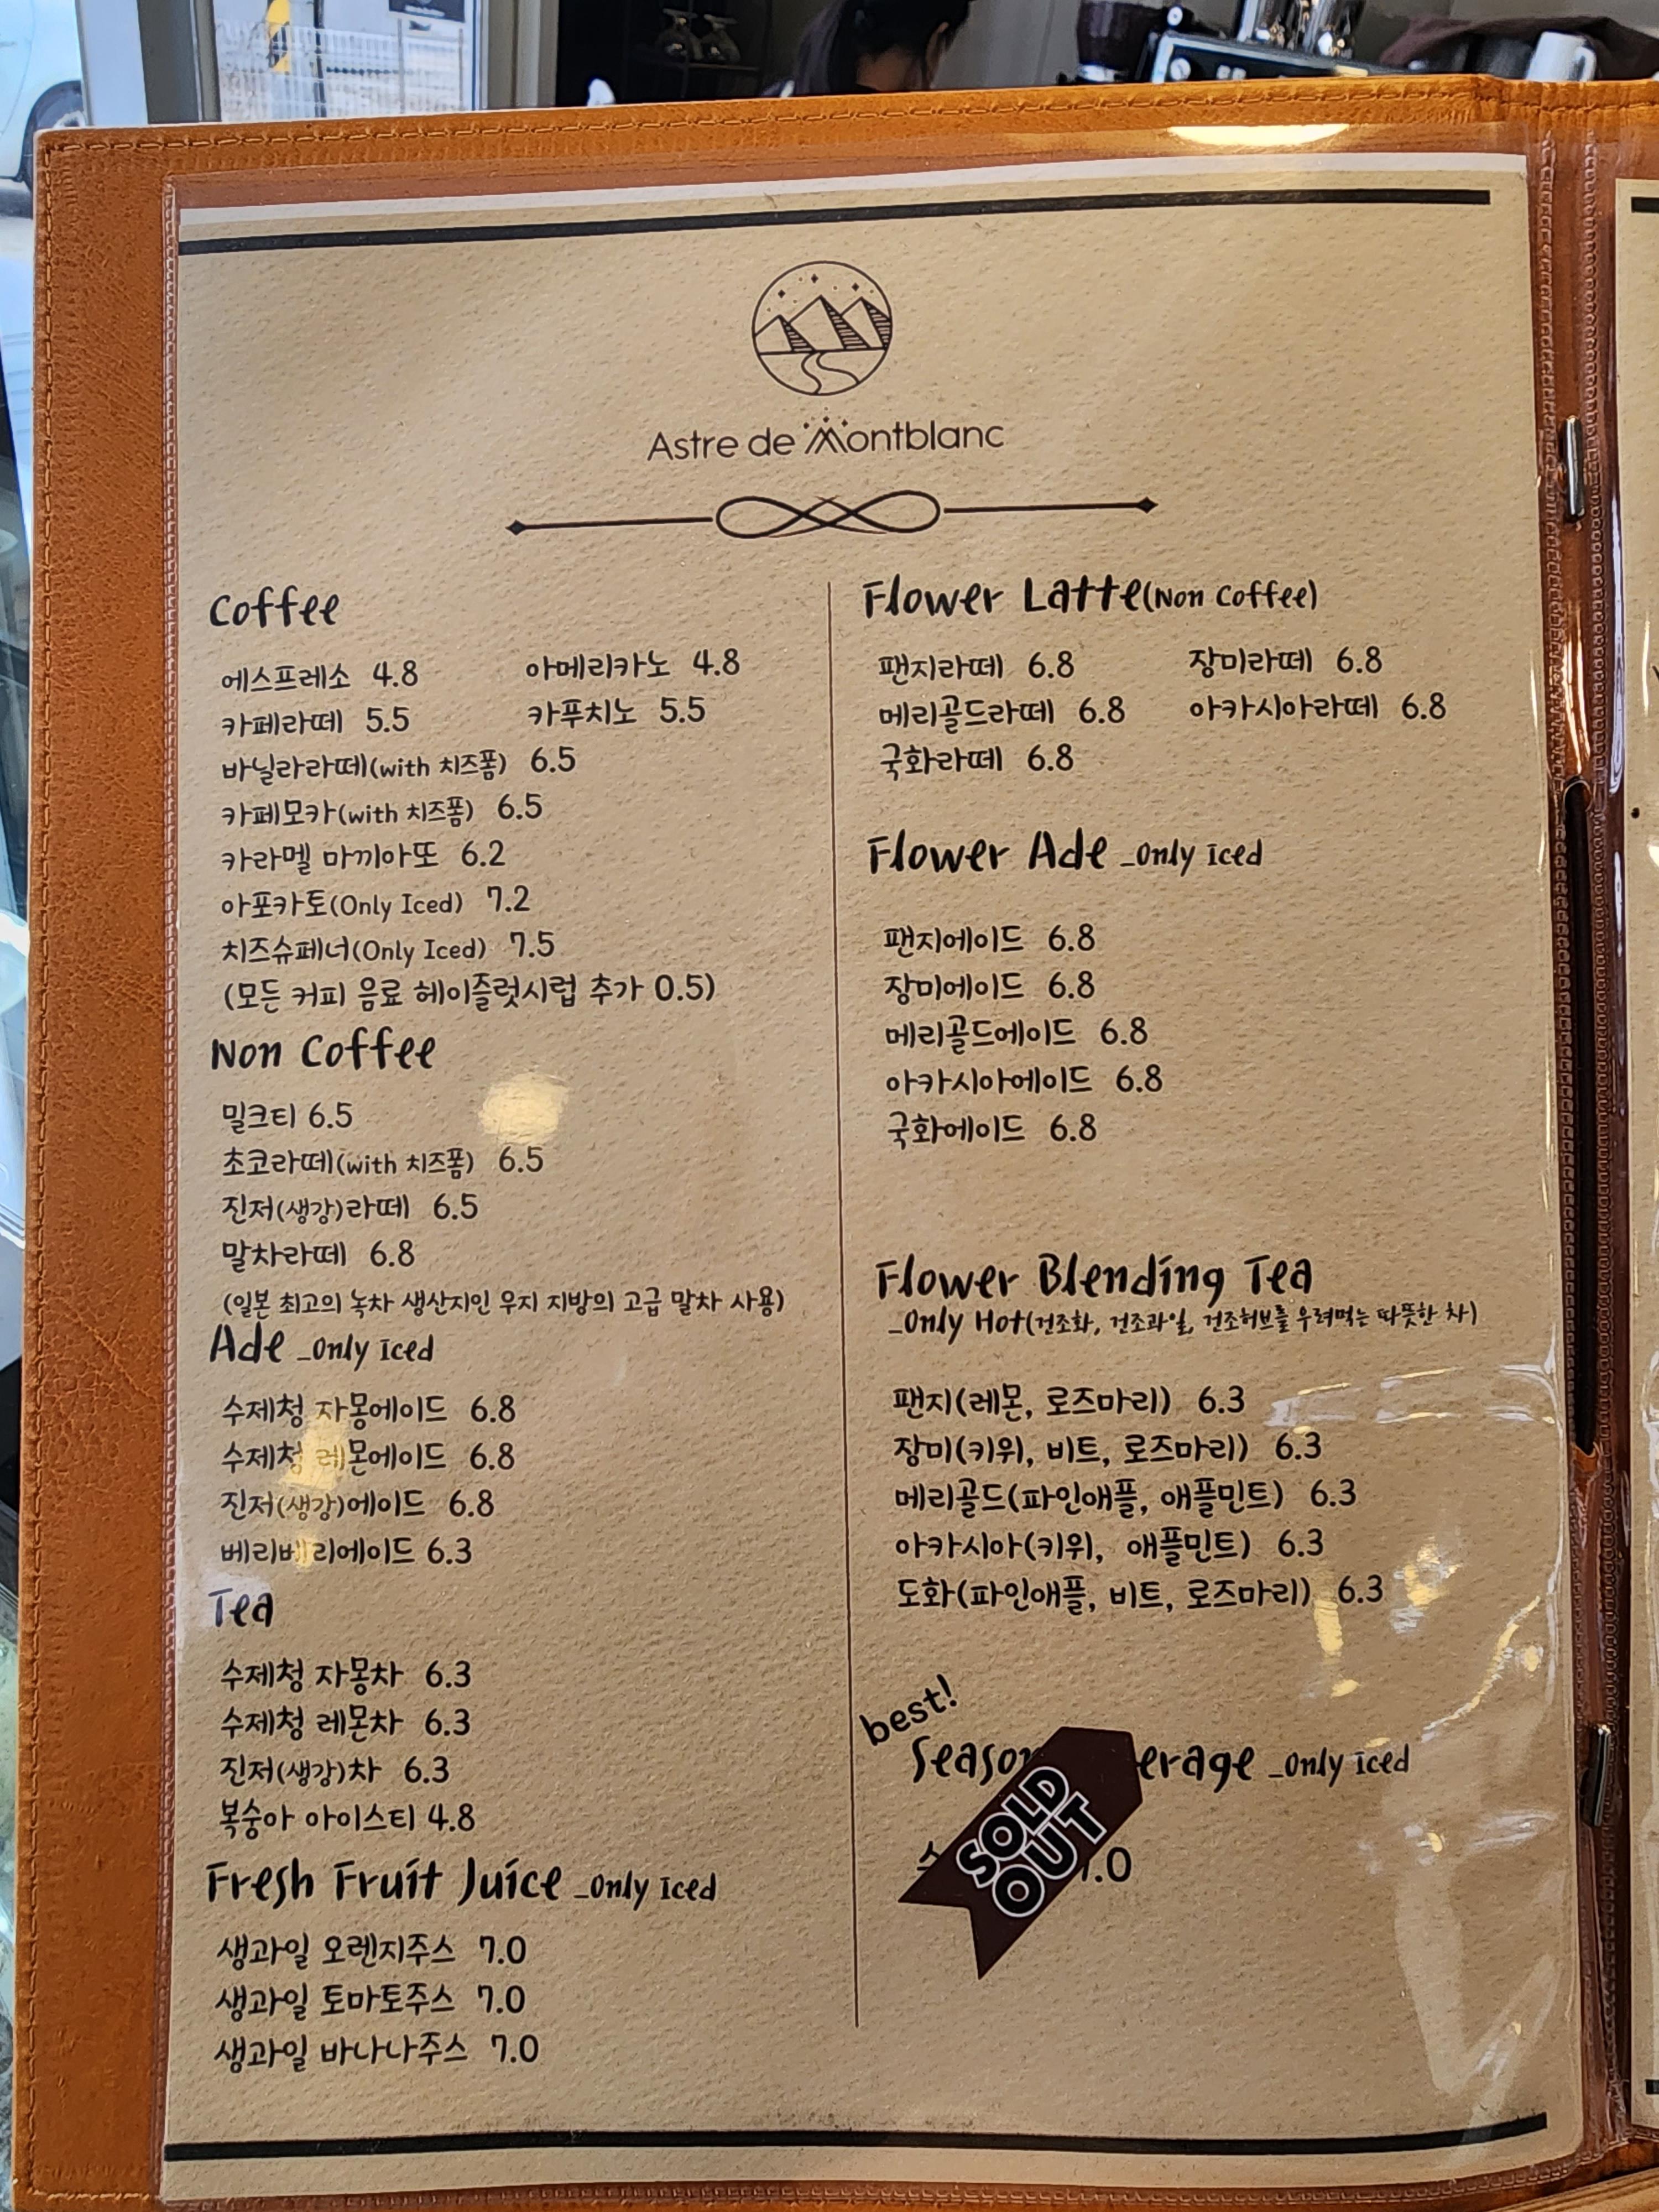 Astre de Montblanc
Coffee
에스프레소 4.8 아메리카노 4.8
카페라떼 5.5 카푸치노 5.5
바닐라라떼(with 치즈폼) 6.5
카페모카(with 치즈폼) 6.5
카라멜 마끼아또 6.2
아포카토(Only Iced) 7.2
치즈슈페너(Only Iced) 7.5
(모든 커피 음료 헤이즐럿시럽 추가 0.5)
Non Coffee
밀크티 6.5
초코라떼(with 치즈폼) 6.5
진저(생강)라떼 6.5
말차라떼 6.8
(일본 최고의 녹차 생산지인 우지 지방의 고급 말차 사용)
Ade _Only Iced
수제청 자몽에이드 6.8
수제청 레몬에이드 6.8
진저(생강)에이드 6.8
베리베리에이드 6.3
Tea
수제청 자몽차 6.3
수제청 레몬차 6.3
진저(생강)차 6.3
복숭아 아이스티 4.8
Fresh Fruit Juice _Only Iced
생과일 오렌지주스 7.0
생과일 토마토주스 7.0
생과일 바나나주스 7.0
Flower Latte(Non Coffee)
팬지라떼 6.8 장미라떼 6.8
메리골드라떼 6.8 아카시아라떼 6.8
국화라떼 6.8
Flower Ade _Only Iced
팬지에이드 6.8
장미에이드 6.8
메리골드에이드 6.8
아카시아에이드 6.8
국화에이드 6.8
Flower Blending Tea
_Only Hot(건조화, 건조과일, 건조허브를 우려먹는 따뜻한 차)
팬지(레몬, 로즈마리) 6.3
장미(키위, 비트, 로즈마리) 6.3
메리골드(파인애플, 애플민트) 6.3
아카시아(키위, 애플민트) 6.3
도화(파인애플, 비트, 로즈마리) 6.3
best!
_Only Iced
SOLD
OUT